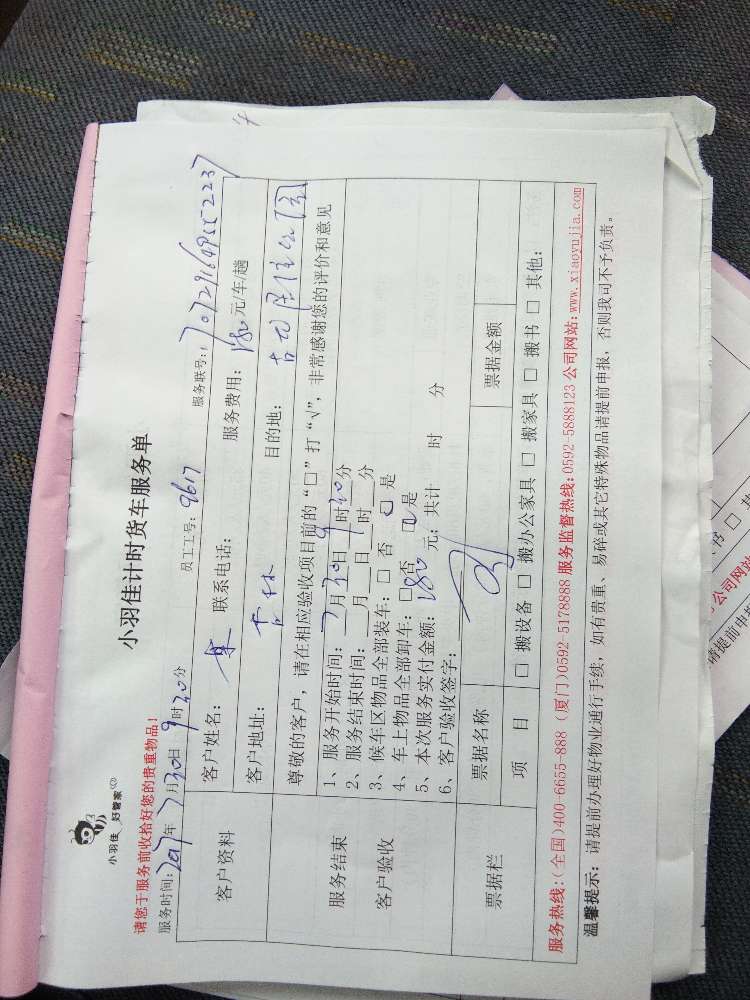 小羽佳 好管家
小羽佳计时货车服务单
请您于服务前收拾好您的贵重物品!
服务时间:2017年7月30日9时30分 员工工号:9617 服务联号:
客户资料
客户姓名: 联系电话: 服务费用:180元/车/趟
客户地址:吉林 目的地:
服务结束
客户验收
尊敬的客户,请在相应验收项目前的“□”打“√”,非常感谢您的评价和意见
1、服务开始时间:7月30日9时30分
2、服务结束时间: 月 日 时 分
3、候车区物品全部装车:□否 是
4、车上物品全部卸车:□否 是
5、本次服务实付金额:180元;共计 时 分
6、客户验收签字:
票据栏
票据名称 票据金额
项 目 □搬设备 □搬办公家具 □搬家具 □搬书 □其他:
服务热线:(全国)400-6655-888 (厦门)0592-5178888 服务监督热线:0592-5888123 公司网站:www.xiaoyujia.com
温馨提示:请提前办理好物业通行手续,如有贵重、易碎或其它特殊物品请提前申报,否则我司不予负责。
公司网站
请提前申